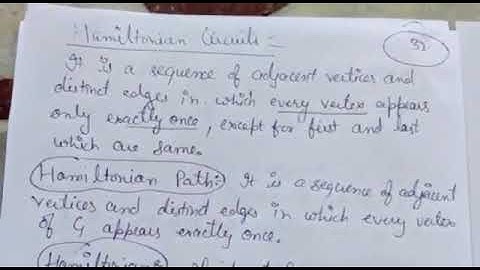 Hamiltonian Circuits :-
32
It is a sequence of adjacent vertices and
distinct edges in which every vertex appears
only exactly once, except for first and last
which are same.
Hamiltonian Path:- It is a sequence of adjacent
vertices and distinct edges in which every vertex
of G appears exactly once.
Hamiltonian